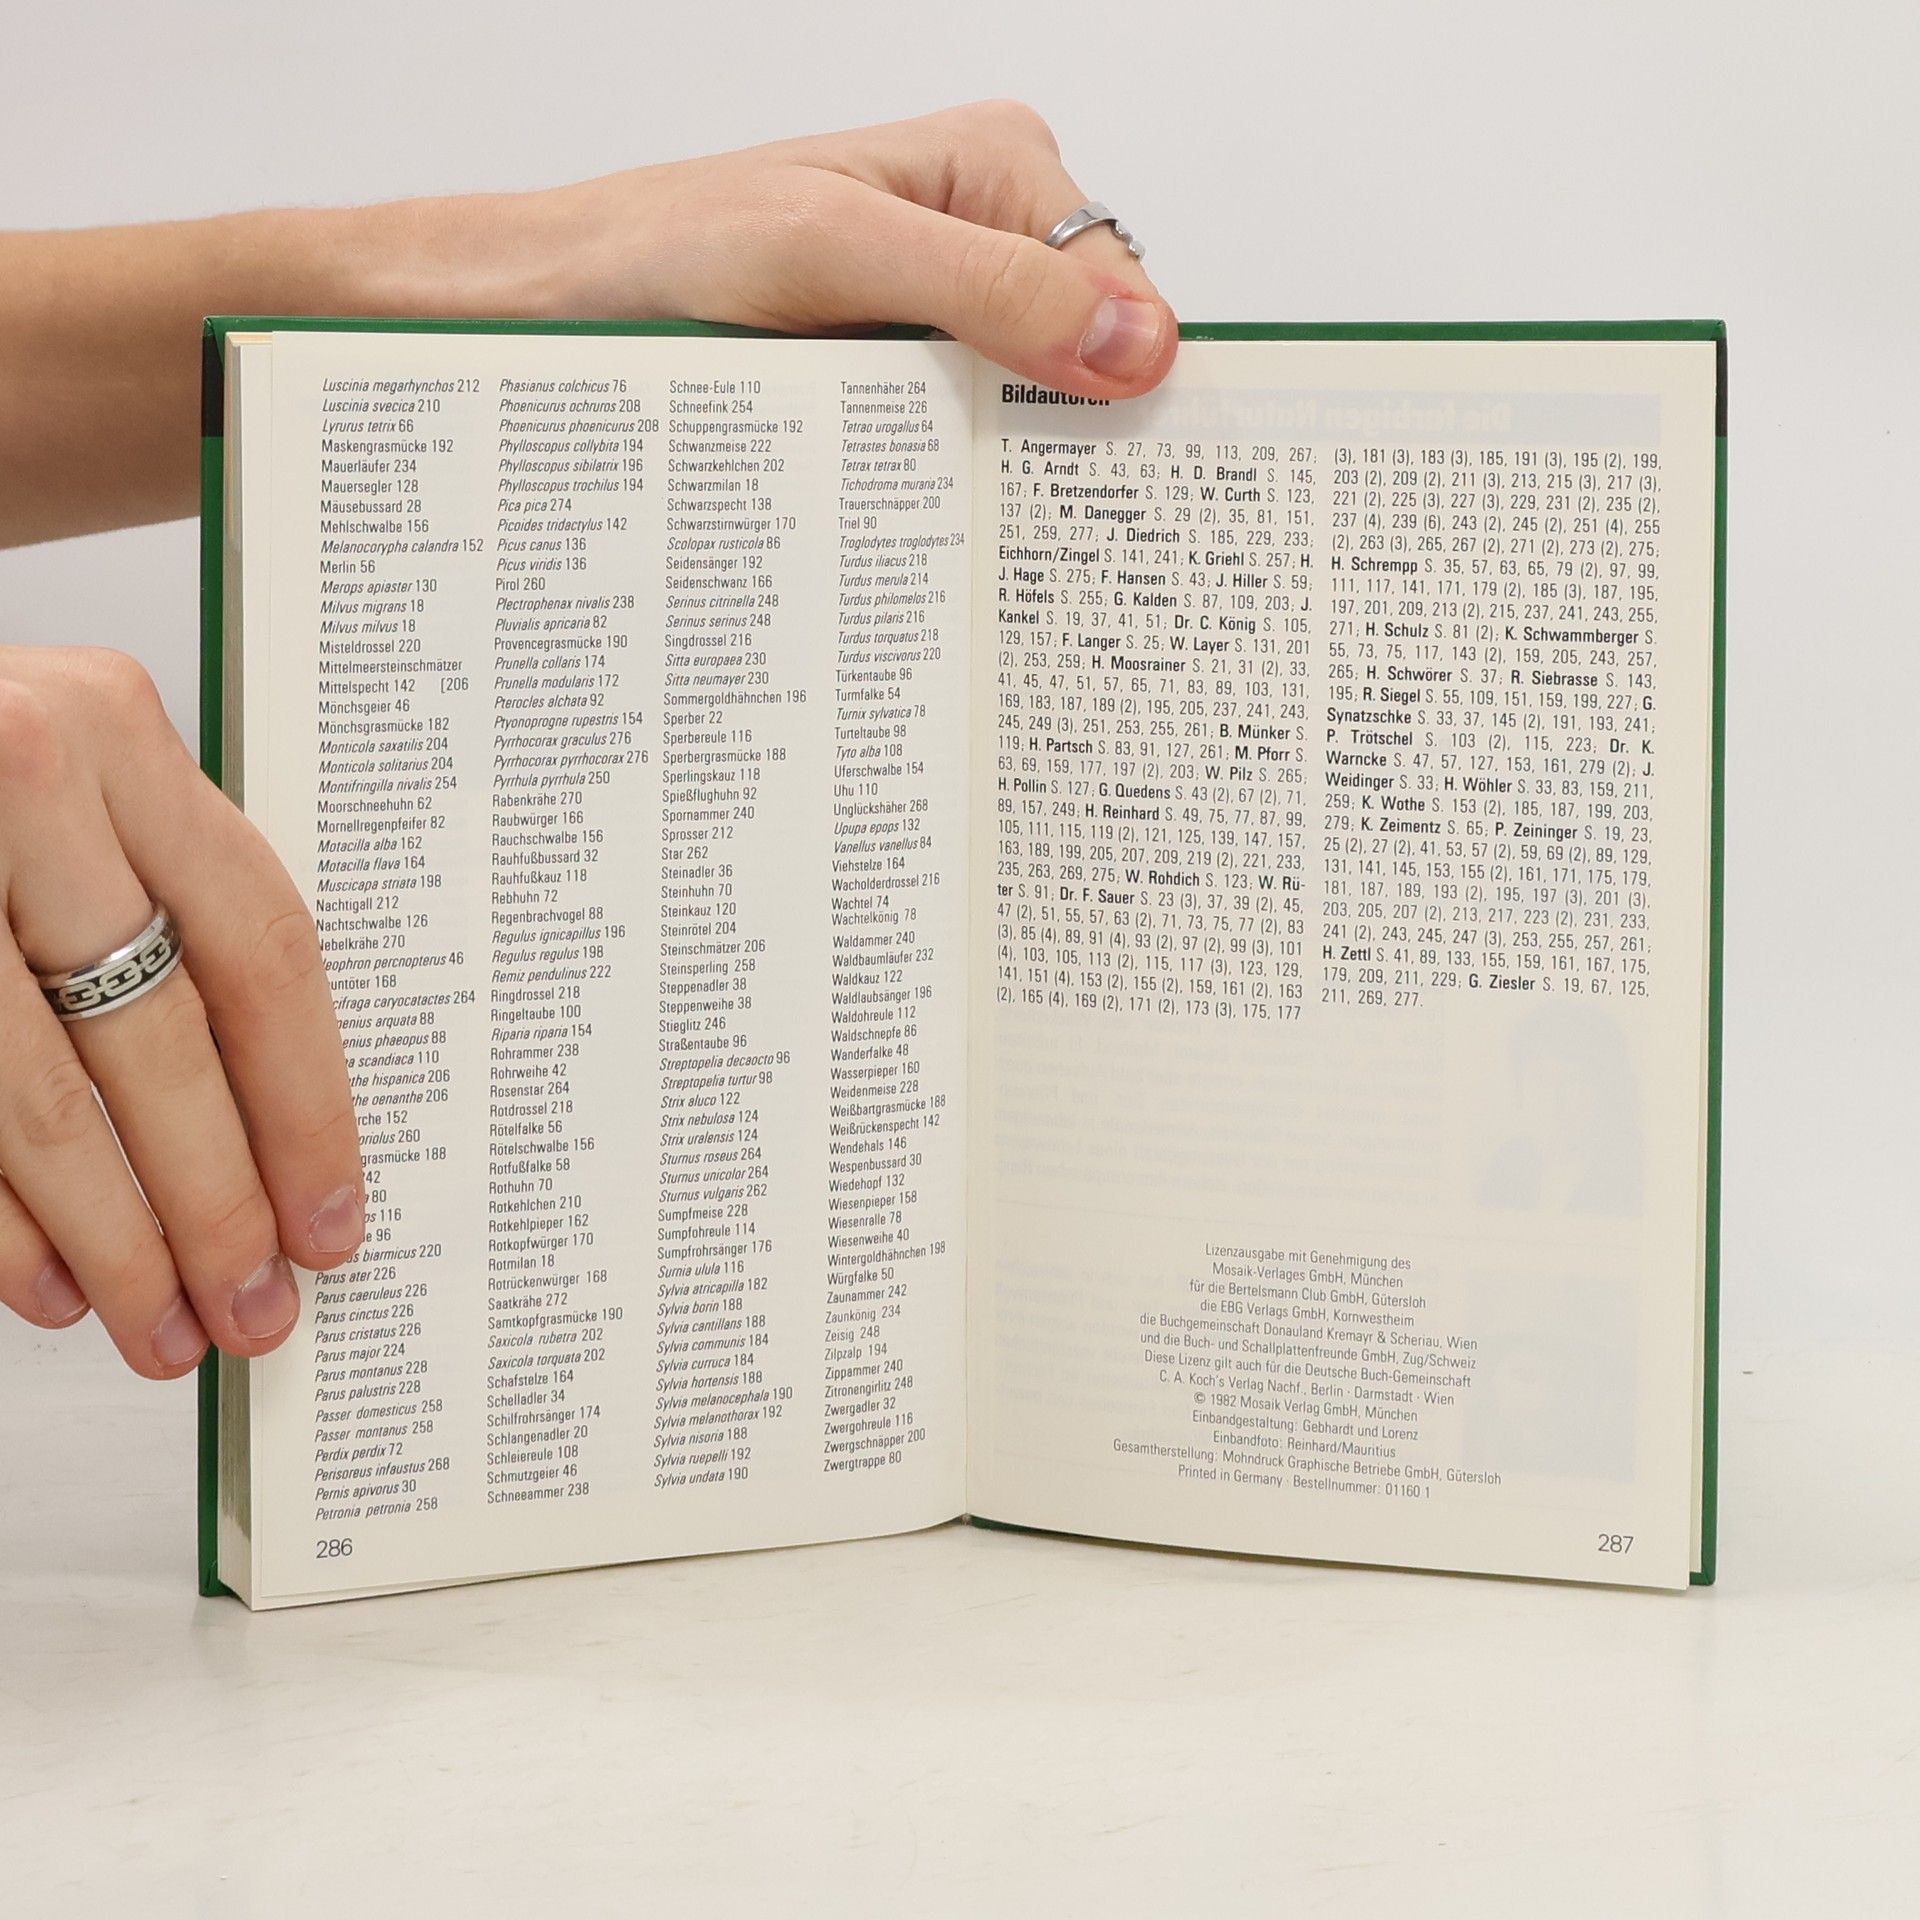 Luscinia megarhynchos 212
Luscinia svecica 210
Lyrurus tetrix 66
Maskengrasmücke 192
Mauerläufer 234
Mauersegler 128
Mäusebussard 28
Mehlschwalbe 156
Melanocorypha calandra 152
Merlin 56
Merops apiaster 130
Milvus migrans 18
Milvus milvus 18
Misteldrossel 220
Mittelmeersteinschmätzer
Mittelspecht 142 [206
Mönchsgeier 46
Mönchsgrasmücke 182
Monticola saxatilis 204
Monticola solitarius 204
Montifringilla nivalis 254
Moorschneehuhn 62
Mornellregenpfeifer 82
Motacilla alba 162
Motacilla flava 164
Muscicapa striata 198
Nachtigall 212
Nachtschwalbe 126
Nebelkrähe 270
percnopterus 46
168
caryocatactes 264
arquata 88
phaeopus 88
scandiaca 110
hispanica 206
oenanthe 206
152
260
188
80
116
96
biarmicus 220
Parus ater 226
Parus caeruleus 226
Parus cinctus 226
Parus cristatus 226
Parus major 224
Parus montanus 228
Parus palustris 228
Passer domesticus 258
Passer montanus 258
Perdix perdix 72
Perisoreus infaustus 268
Pernis apivorus 30
Petronia petronia 258
Phasianus colchicus 76
Phoenicurus ochruros 208
Phoenicurus phoenicurus 208
Phylloscopus collybita 194
Phylloscopus sibilatrix 196
Phylloscopus trochilus 194
Pica pica 274
Picoides tridactylus 142
Picus canus 136
Picus viridis 136
Pirol 260
Plectrophenax nivalis 238
Pluvialis apricaria 82
Provencegrasmücke 190
Prunella collaris 174
Prunella modularis 172
Pterocles alchata 92
Ptyonoprogne rupestris 154
Pyrrhocorax graculus 276
Pyrrhocorax pyrrhocorax 276
Pyrrhula pyrrhula 250
Rabenkrähe 270
Raubwürger 166
Rauchschwalbe 156
Rauhfußbussard 32
Rauhfußkauz 118
Rebhuhn 72
Regenbrachvogel 88
Regulus ignicapillus 196
Regulus regulus 198
Remiz pendulinus 222
Ringdrossel 218
Ringeltaube 100
Riparia riparia 154
Rohrammer 238
Rohrweihe 42
Rosenstar 264
Rotdrossel 218
Rötelfalke 56
Rötelschwalbe 156
Rotfußfalke 58
Rothuhn 70
Rotkehlchen 210
Rotkehlpieper 162
Rotkopfwürger 170
Rotmilan 18
Rotrückenwürger 168
Saatkrähe 272
Samtkopfgrasmücke 190
Saxicola rubetra 202
Saxicola torquata 202
Schafstelze 164
Schelladler 34
Schilfrohrsänger 174
Schlangenadler 20
Schleiereule 108
Schmutzgeier 46
Schneeammer 238
Schnee-Eule 110
Schneefink 254
Schuppengrasmücke 192
Schwanzmeise 222
Schwarzkehlchen 202
Schwarzmilan 18
Schwarzspecht 138
Schwarzstirnwürger 170
Scolopax rusticola 86
Seidensänger 192
Seidenschwanz 166
Serinus citrinella 248
Serinus serinus 248
Singdrossel 216
Sitta europaea 230
Sitta neumayer 230
Sommergoldhähnchen 196
Sperber 22
Sperbereule 116
Sperbergrasmücke 188
Sperlingskauz 118
Spießflughuhn 92
Spornammer 240
Sprosser 212
Star 262
Steinadler 36
Steinhuhn 70
Steinkauz 120
Steinrötel 204
Steinschmätzer 206
Steinsperling 258
Steppenadler 38
Steppenweihe 38
Stieglitz 246
Straßentaube 96
Streptopelia decaocto 96
Streptopelia turtur 98
Strix aluco 122
Strix nebulosa 124
Strix uralensis 124
Sturnus roseus 264
Sturnus unicolor 264
Sturnus vulgaris 262
Sumpfmeise 228
Sumpfohreule 114
Sumpfrohrsänger 176
Surnia ulula 116
Sylvia atricapilla 182
Sylvia borin 188
Sylvia cantillans 188
Sylvia communis 184
Sylvia curruca 184
Sylvia hortensis 188
Sylvia melanocephala 190
Sylvia melanothorax 192
Sylvia nisoria 188
Sylvia ruepelli 192
Sylvia undata 190
Tannenhäher 264
Tannenmeise 226
Tetrao urogallus 64
Tetrastes bonasia 68
Tetrax tetrax 80
Tichodroma muraria 234
Trauerschnäpper 200
Triel 90
Troglodytes troglodytes 234
Turdus iliacus 218
Turdus merula 214
Turdus philomelos 216
Turdus pilaris 216
Turdus torquatus 218
Turdus viscivorus 220
Türkentaube 96
Turmfalke 54
Turnix sylvatica 78
Turteltaube 98
Tyto alba 108
Uferschwalbe 154
Uhu 110
Unglückshäher 268
Upupa epops 132
Vanellus vanellus 84
Viehstelze 164
Wacholderdrossel 216
Wachtel 74
Wachtelkönig 78
Waldammer 240
Waldbaumläufer 232
Waldkauz 122
Waldlaubsänger 196
Waldohreule 112
Waldschnepfe 86
Wanderfalke 48
Wasserpieper 160
Weidenmeise 228
Weißbartgrasmücke 188
Weißrückenspecht 142
Wendehals 146
Wespenbussard 30
Wiedehopf 132
Wiesenpieper 158
Wiesenralle 78
Wiesenweihe 40
Wintergoldhähnchen 198
Würgfalke 50
Zaunammer 242
Zaunkönig 234
Zeisig 248
Zilpzalp 194
Zippammer 240
Zitronengirlitz 248
Zwergadler 32
Zwergohreule 116
Zwergschnäpper 200
Zwergtrappe 80
286
Bildautoren
T. Angermayer S. 27, 73, 99, 113, 209, 267;
H. G. Arndt S. 43, 63; H. D. Brandl S. 145,
167; F. Bretzendorfer S. 129; W. Curth S. 123,
137 (2); M. Danegger S. 29 (2), 35, 81, 151,
251, 259, 277; J. Diedrich S. 185, 229, 233;
Eichhorn/Zingel S. 141, 241; K. Griehl S. 257; H.
J. Hage S. 275; F. Hansen S. 43; J. Hiller S. 59;
R. Höfels S. 255; G. Kalden S. 87, 109, 203; J.
Kankel S. 19, 37, 41, 51; Dr. C. König S. 105,
129, 157; F. Langer S. 25; W. Layer S. 131, 201
(2), 253, 259; H. Moosrainer S. 21, 31 (2), 33,
41, 45, 47, 51, 57, 65, 71, 83, 89, 103, 131,
169, 183, 187, 189 (2), 195, 205, 237, 241, 243,
245, 249 (3), 251, 253, 255, 261; B. Münker S.
119; H. Partsch S. 83, 91, 127, 261; M. Pforr S.
63, 69, 159, 177, 197 (2), 203; W. Pilz S. 265;
H. Pollin S. 127; G. Quedens S. 43 (2), 67 (2), 71,
89, 157, 249; H. Reinhard S. 49, 75, 77, 87, 99,
105, 111, 115, 119 (2), 121, 125, 139, 147, 157,
163, 189, 199, 205, 207, 209, 219 (2), 221, 233,
235, 263, 269, 275; W. Rohdich S. 123; W. Rü-
ter S. 91; Dr. F. Sauer S. 23 (3), 37, 39 (2), 45,
47 (2), 51, 55, 57, 63 (2), 71, 73, 75, 77 (2), 83
(3), 85 (4), 89, 91 (4), 93 (2), 97 (2), 99 (3), 101
(4), 103, 105, 113 (2), 115, 117 (3), 123, 129,
141, 151 (4), 153 (2), 155 (2), 159, 161 (2), 163
(2), 165 (4), 169 (2), 171 (2), 173 (3), 175, 177
(3), 181 (3), 183 (3), 185, 191 (3), 195 (2), 199,
203 (2), 209 (2), 211 (3), 213, 215 (3), 217 (3),
221 (2), 225 (3), 227 (3), 229, 231 (2), 235 (2),
237 (4), 239 (6), 243 (2), 245 (2), 251 (4), 255
(2), 263 (3), 265, 267 (2), 271 (2), 273 (2), 275;
H. Schrempp S. 35, 57, 63, 65, 79 (2), 97, 99,
111, 117, 141, 171, 179 (2), 185 (3), 187, 195,
197, 201, 209, 213 (2), 215, 237, 241, 243, 255,
271; H. Schulz S. 81 (2); K. Schwammberger S.
55, 73, 75, 117, 143 (2), 159, 205, 243, 257,
265; H. Schwörer S. 37; R. Siebrasse S. 143,
195; R. Siegel S. 55, 109, 151, 159, 199, 227; G.
Synatzschke S. 33, 37, 145 (2), 191, 193, 241;
P. Trötschel S. 103 (2), 115, 223; Dr. K.
Warncke S. 47, 57, 127, 153, 161, 279 (2); J.
Weidinger S. 33; H. Wöhler S. 33, 83, 159, 211,
259; K. Wothe S. 153 (2), 185, 187, 199, 203,
279; K. Zeimentz S. 65; P. Zeininger S. 19, 23,
25 (2), 27 (2), 41, 53, 57 (2), 59, 69 (2), 89, 129,
131, 141, 145, 153, 155 (2), 161, 171, 175, 179,
181, 187, 189, 193 (2), 195, 197 (3), 201 (3),
203, 205, 207 (2), 213, 217, 223 (2), 231, 233,
241 (2), 243, 245, 247 (3), 253, 255, 257, 261;
H. Zettl S. 41, 89, 133, 155, 159, 161, 167, 175,
179, 209, 211, 229; G. Ziesler S. 19, 67, 125,
211, 269, 277.
Lizenzausgabe mit Genehmigung des
Mosaik-Verlages GmbH, München
für die Bertelsmann Club GmbH, Gütersloh
die EBG Verlags GmbH, Kornwestheim
die Buchgemeinschaft Donauland Kremayr & Scheriau, Wien
und die Buch- und Schallplattenfreunde GmbH, Zug/Schweiz
Diese Lizenz gilt auch für die Deutsche Buch-Gemeinschaft
C. A. Koch's Verlag Nachf., Berlin · Darmstadt · Wien
© 1982 Mosaik Verlag GmbH, München
Einbandgestaltung: Gebhardt und Lorenz
Einbandfoto: Reinhard/Mauritius
Gesamtherstellung: Mohndruck Graphische Betriebe GmbH, Gütersloh
Printed in Germany · Bestellnummer: 01160 1
287